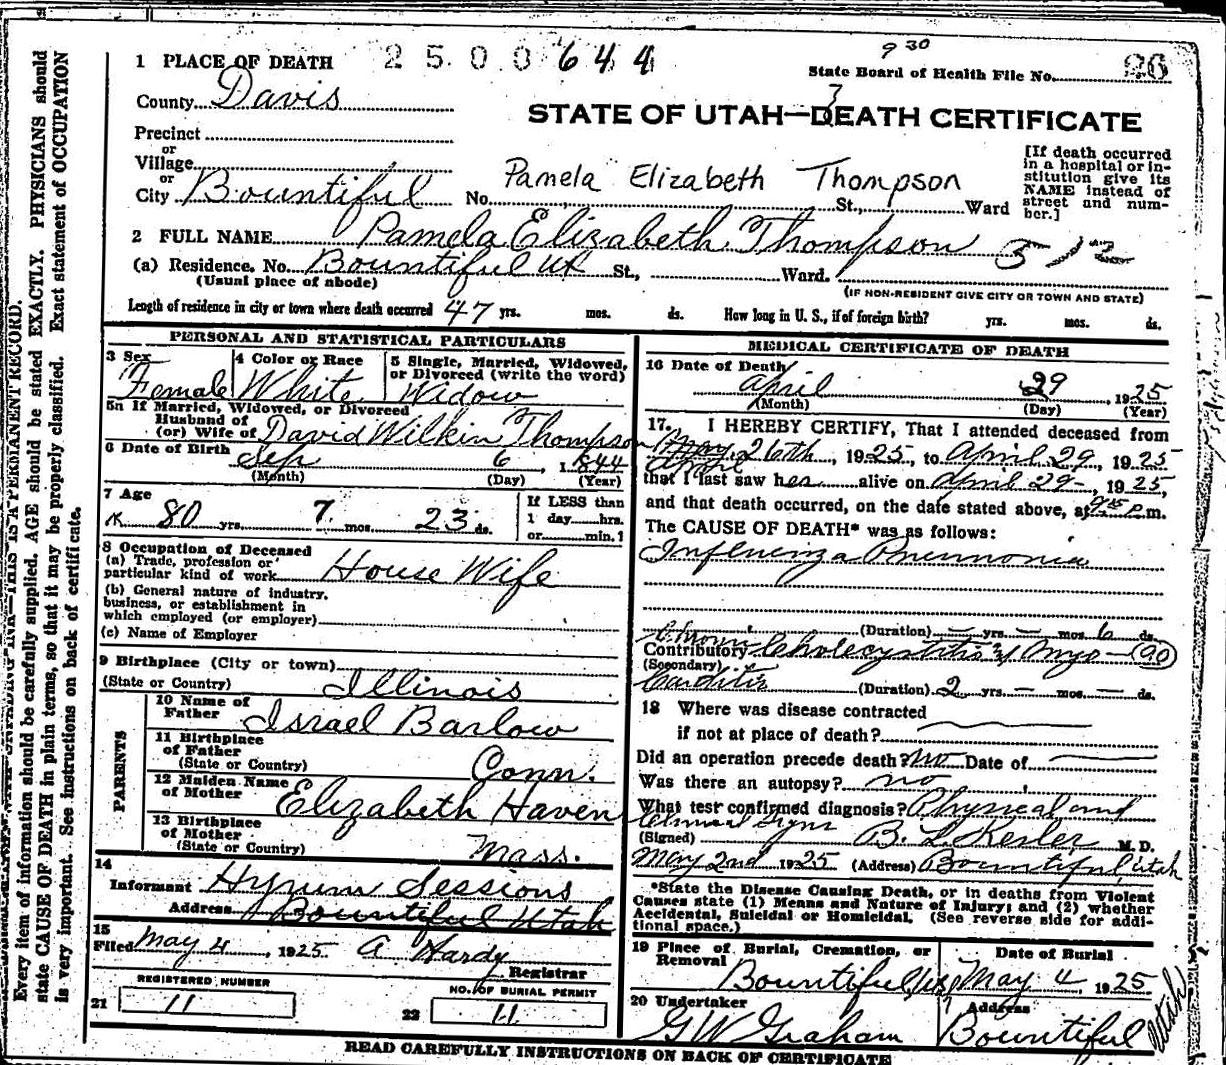 9 30
1 PLACE OF DEATH 2500644
State Board of Health File No. 26
County Davis
STATE OF UTAH—DEATH CERTIFICATE
Precinct
or
Village
or
City Bountiful No. Pamela Elizabeth Thompson St., Ward
[If death occurred
in a hospital or in-
stitution give its
NAME instead of
street and num-
ber.]
2 FULL NAME Pamela Elizabeth Thompson
(a) Residence. No. Bountiful Ut St., Ward.
(Usual place of abode)
(IF NON-RESIDENT GIVE CITY OR TOWN AND STATE)
Length of residence in city or town where death occurred 47 yrs. mos. ds. How long in U. S., if of foreign birth? yrs. mos. ds.
PERSONAL AND STATISTICAL PARTICULARS
3 Sex Female
4 Color or Race White
5 Single, Married, Widowed,
or Divorced (write the word)
Widow
5a If Married, Widowed, or Divorced
Husband of
(or) Wife of David Wilkin Thompson
6 Date of Birth Sep 6, 1844
(Month) (Day) (Year)
7 Age 80 yrs. 7 mos. 23 ds.
If LESS than
1 day hrs.
or min.?
8 Occupation of Deceased
(a) Trade, profession or
particular kind of work House Wife
(b) General nature of industry,
business, or establishment in
which employed (or employer)
(c) Name of Employer
9 Birthplace (City or town)
(State or Country) Illinois
PARENTS
10 Name of
Father Israel Barlow
11 Birthplace
of Father
(State or Country) Conn.
12 Maiden Name
of Mother Elizabeth Haven
13 Birthplace
of Mother
(State or Country) Mass.
14
Informant Hyrum Sessions
Address Bountiful Utah
15
Filed May 4, 1925 A Hardy
Registrar
REGISTERED NUMBER
21 11
NO. OF BURIAL PERMIT
22 11
MEDICAL CERTIFICATE OF DEATH
16 Date of Death
April 29, 1925
(Month) (Day) (Year)
17. I HEREBY CERTIFY, That I attended deceased from
April 26th, 1925, to April 29, 1925
that I last saw her alive on April 29-, 1925,
and that death occurred, on the date stated above, at P.m.
The CAUSE OF DEATH* was as follows:
Influenza Pneumonia
(Duration) — yrs. — mos. 6 ds.
Contributory Cholecystitis Myo- (90)
(Secondary)
Carditis (Duration) 2 yrs. — mos. — ds.
18 Where was disease contracted
if not at place of death?
Did an operation precede death? No Date of
Was there an autopsy? no
What test confirmed diagnosis? Physical and
Clinical Signs
(Signed) B. L. Kesler M. D.
May 2nd 1925 (Address) Bountiful Utah
*State the Disease Causing Death, or in deaths from Violent
Causes state (1) Means and Nature of Injury; and (2) whether
Accidental, Suicidal or Homicidal. (See reverse side for addi-
tional space.)
19 Place of Burial, Cremation, or
Removal
Bountiful
Date of Burial
May 4, 1925
20 Undertaker
G W Graham
Address
Bountiful Utah
READ CAREFULLY INSTRUCTIONS ON BACK OF CERTIFICATE
Every item of information should be carefully supplied. AGE should be stated EXACTLY. PHYSICIANS should
state CAUSE OF DEATH in plain terms, so that it may be properly classified. Exact statement of OCCUPATION
is very important. See instructions on back of certificate.